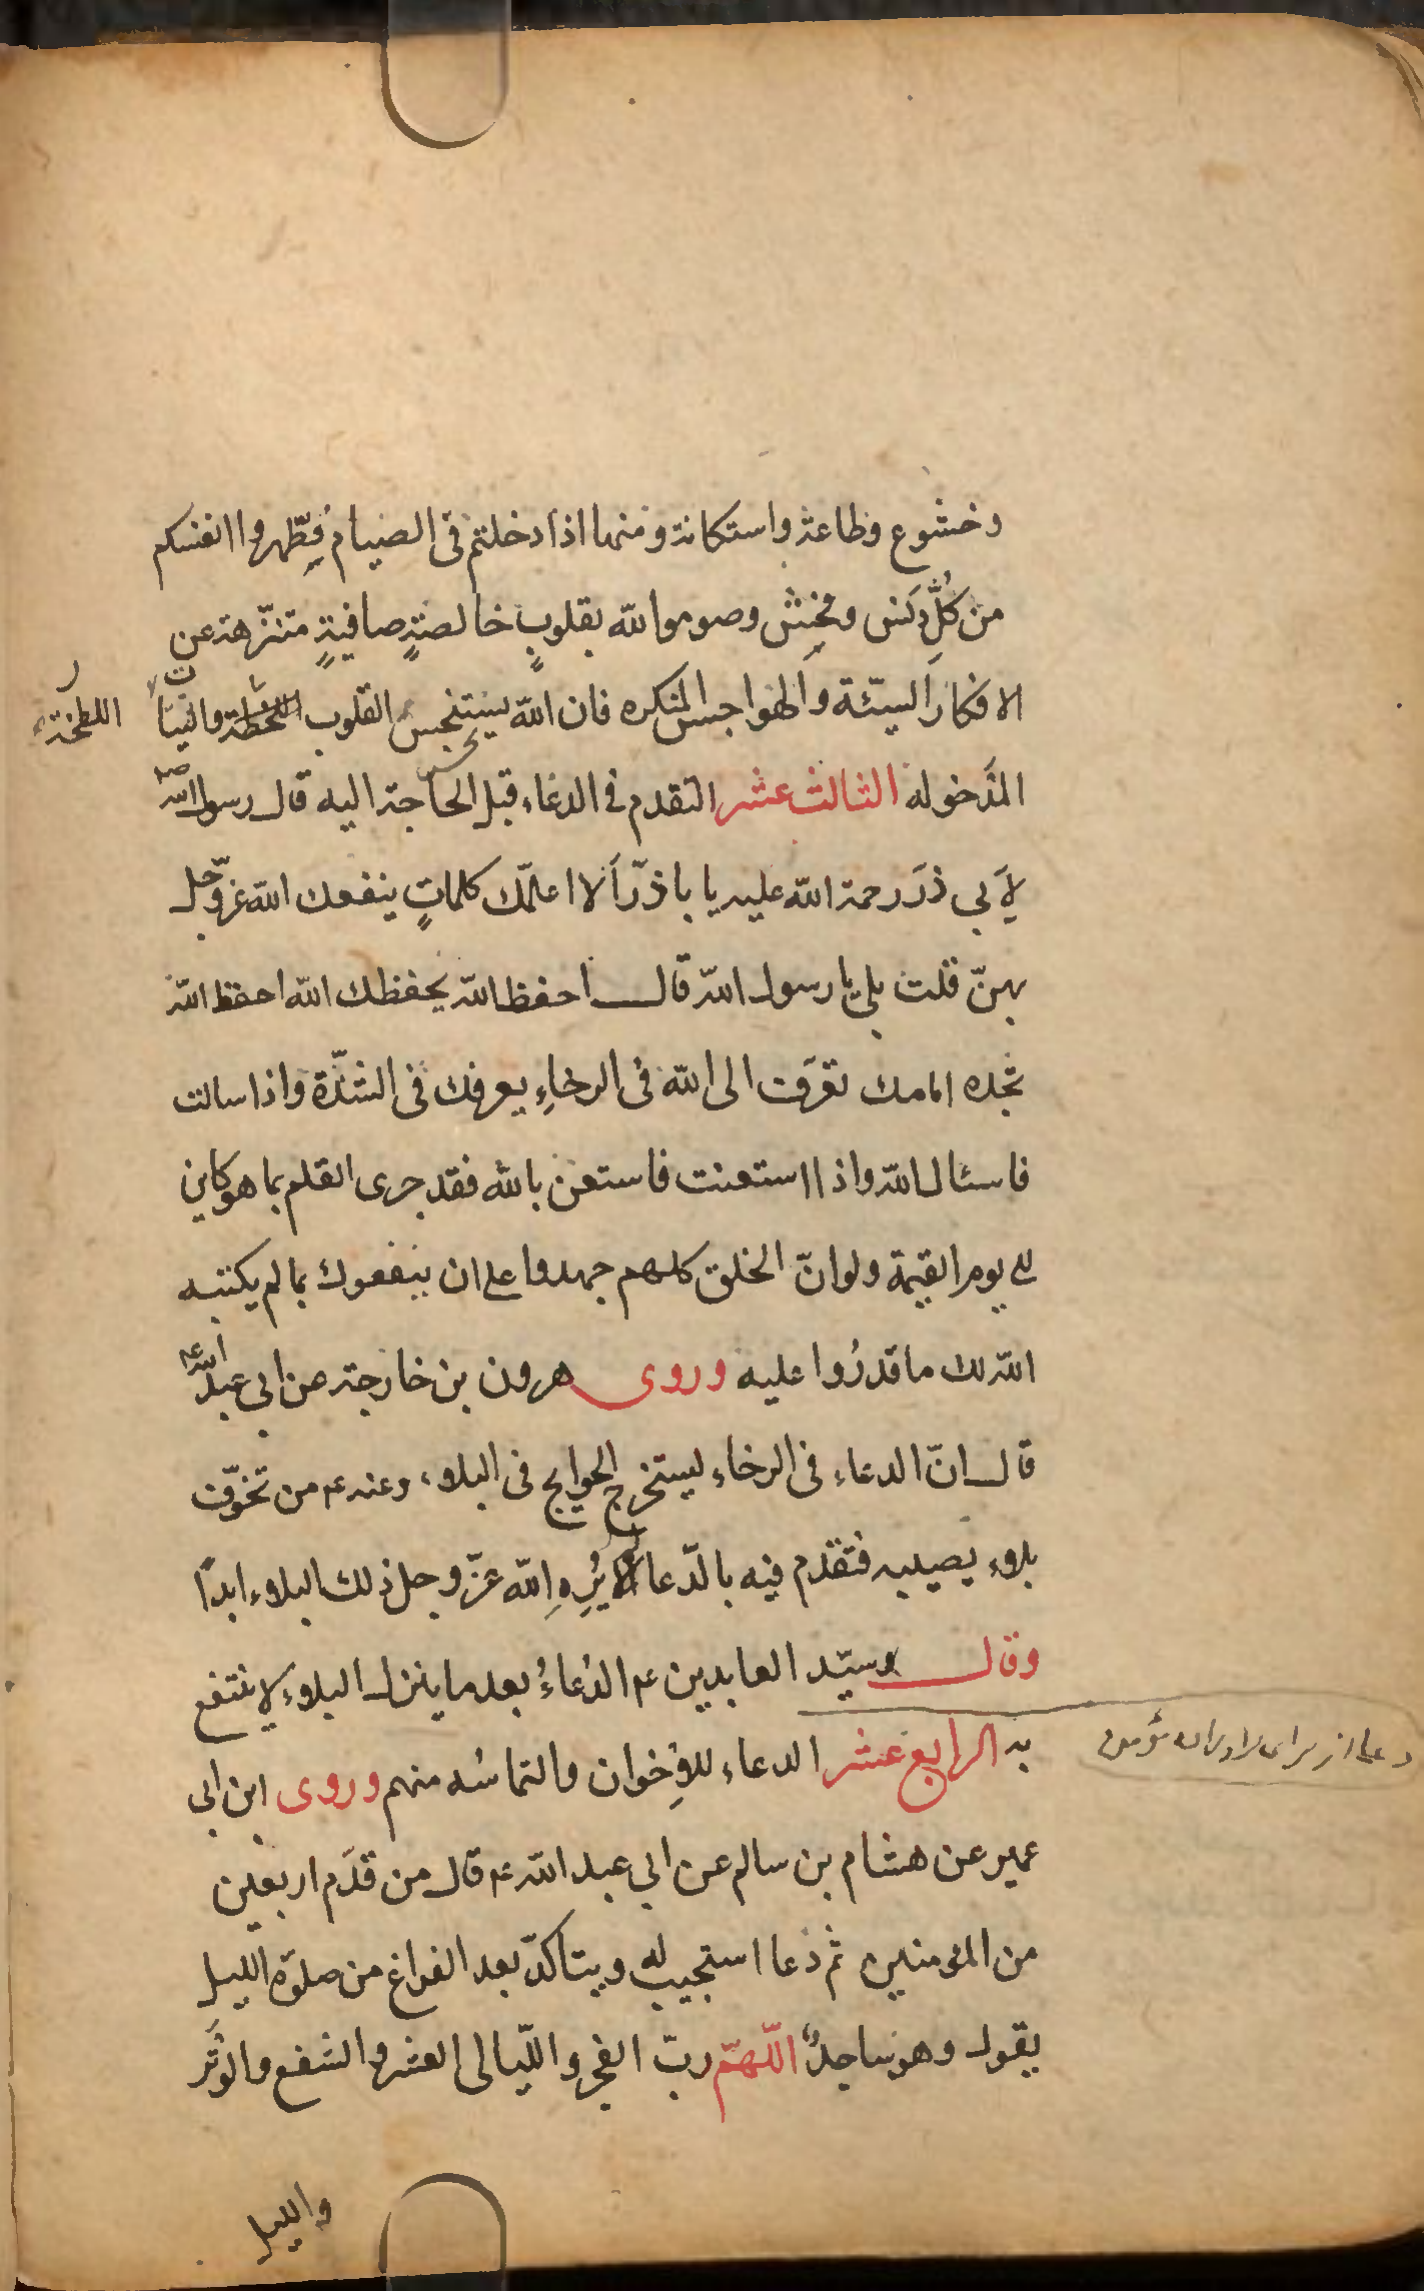 وخشوع وطاعة واستكانة ومنها اذا دخلتم فى الصيام فطّهروا انفسكم
من كلّ دَنس ونجِس وصوموا لله بقلوبٍ خالصةٍ صافيةٍ منزّهة عن
الافكار السيّئة والهواجس المنكره فان الله يستنجس القلوب اللطخة والنيّات
اللطخة
المدخوله الثالث عشر التقدم فى الدعاء قبل الحاجة اليه قال رسول الله ص
لاَبى ذرّ رحمة الله عليه يا باذرّ اَلا اعلمّك كلماتٍ ينفعك الله عزّوجّل
بهنّ قلت بلى يا رسول الله قال احفظ الله يحفظك الله احفظ الله
تجده امامك تعرّف الى الله فى الرخاءِ يعرفك فى الشدّة واذا سالت
فاسئال الله واذا استعنت فاستعن بالله فقد جرى القلم بما هو كاين
الى يوم القيمة ولو انّ الخلق كلهم جهدوا على ان ينفعوك بما لم يكتبه
الله لك ما قدرُوا عليه وروى هرون بن خارجة عن ابى عبد الله ع
قال انّ الدعاء فى الرخاء ليستخرج الحوايج فى البلاء وعنه ع من تخوّف
بلاء يصيبه فتقدم فيه بالدّعا لم يُرِهِ الله عزّ وجل ذلك البلاء ابدًا
وقال سيّد العابدين ع الدُعاءُ بعد ما ينزل البلاء لا ينتفع
به الرابع عشر الدعاء للاِخوان والتماسُه منهم وروى ابن ابى
دعا از براى برادران مؤمن
عمير عن هشام بن سالم عن ابى عبد الله ع قال من قدّم اربعين
من المؤمنين ثم دعا استجيب له ويتاكدّ بعد الفراغ من صلوة الليل
يقول وهو ساجدٌ اللّهمّ ربّ الفجر واللّيالى العشر والشفع والوَتَر
والليل